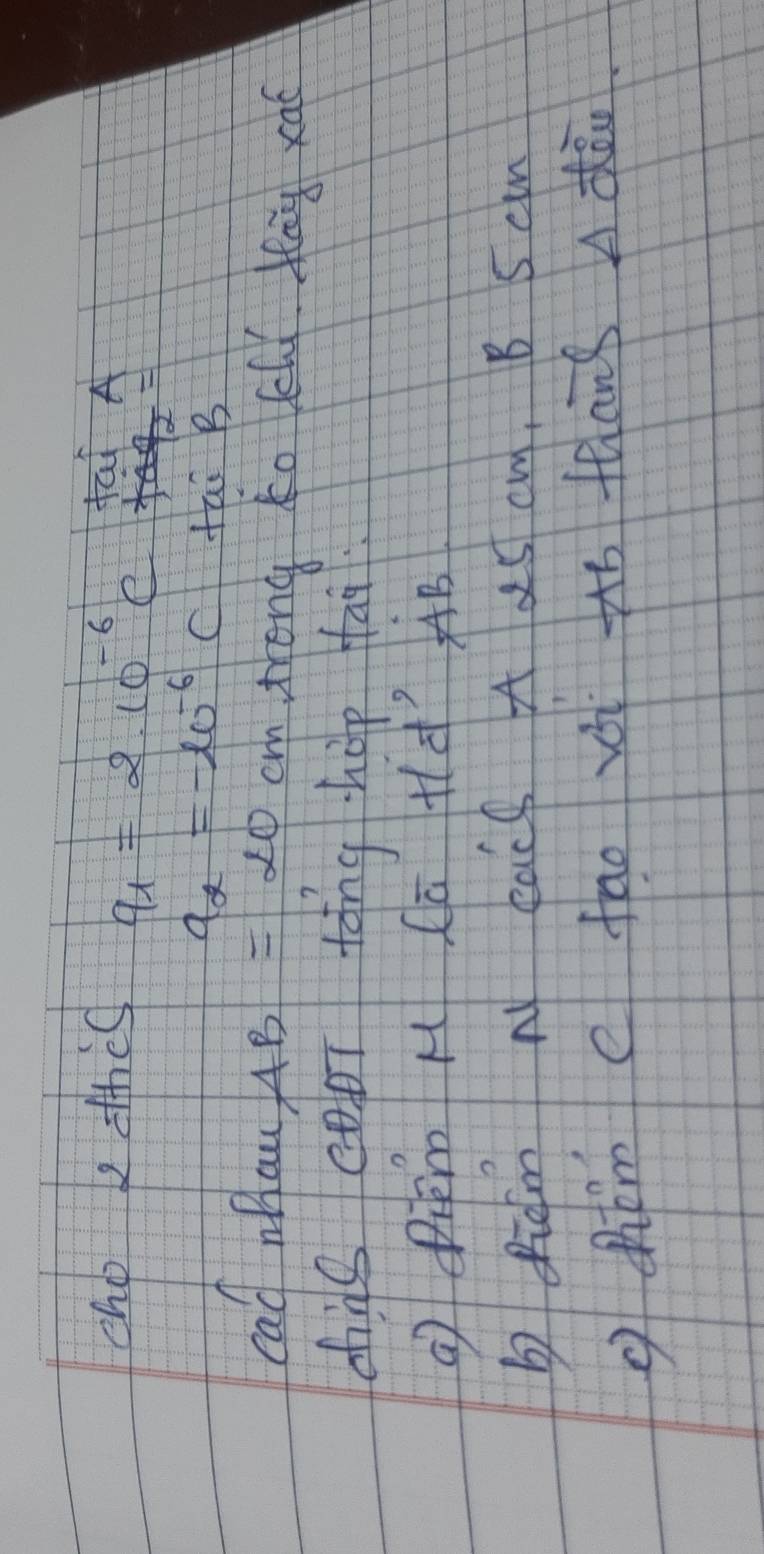 cho 2 đthcs q1 = 2.10⁻⁶ C tại A
q2 = -10⁻⁶ C tại B
các nhau AB = 20 cm trong ko khí. Hãy xác
định CĐĐT tổng hợp tại:
a) Điểm H là tđ' AB.
b) Điểm N cách A 25 cm, B 5 cm
c) Điểm C tạo với AB thành Δ đều.